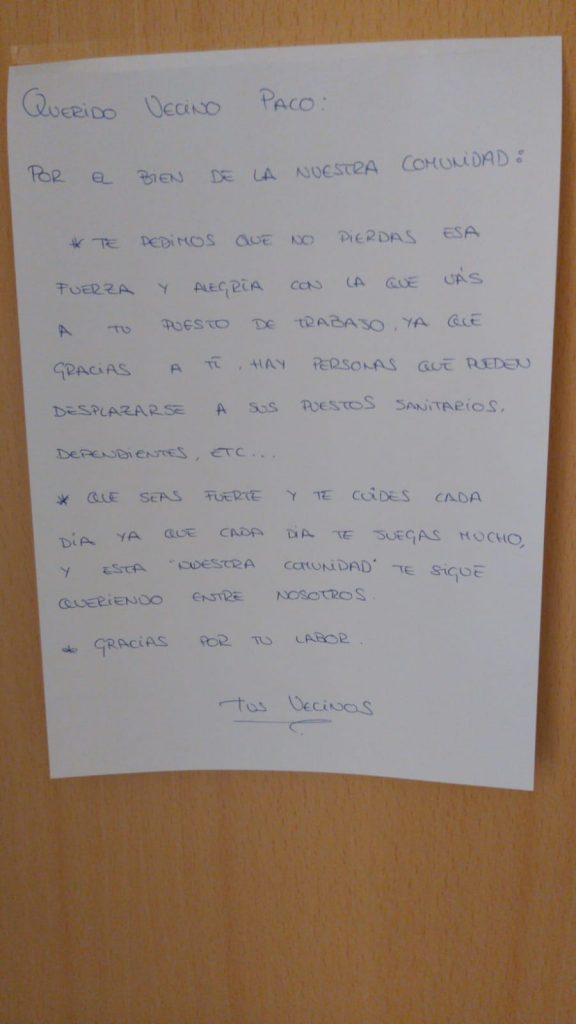 QUERIDO VECINO PACO:
POR EL BIEN DE LA NUESTRA COMUNIDAD:
* TE PEDIMOS QUE NO PIERDAS ESA
FUERZA Y ALEGRÍA CON LA QUE VÁS
A TU PUESTO DE TRABAJO, YA QUE
GRACIAS A TÍ, HAY PERSONAS QUE PUEDEN
DESPLAZARSE A SUS PUESTOS SANITARIOS,
DEPENDIENTES, ETC...
* QUE SEAS FUERTE Y TE CUÍDES CADA
DÍA YA QUE CADA DÍA TE JUEGAS MUCHO,
Y ESTA "NUESTRA COMUNIDAD" TE SIGUE
QUERIENDO ENTRE NOSOTROS.
* GRACIAS POR TU LABOR.
TUS VECINOS